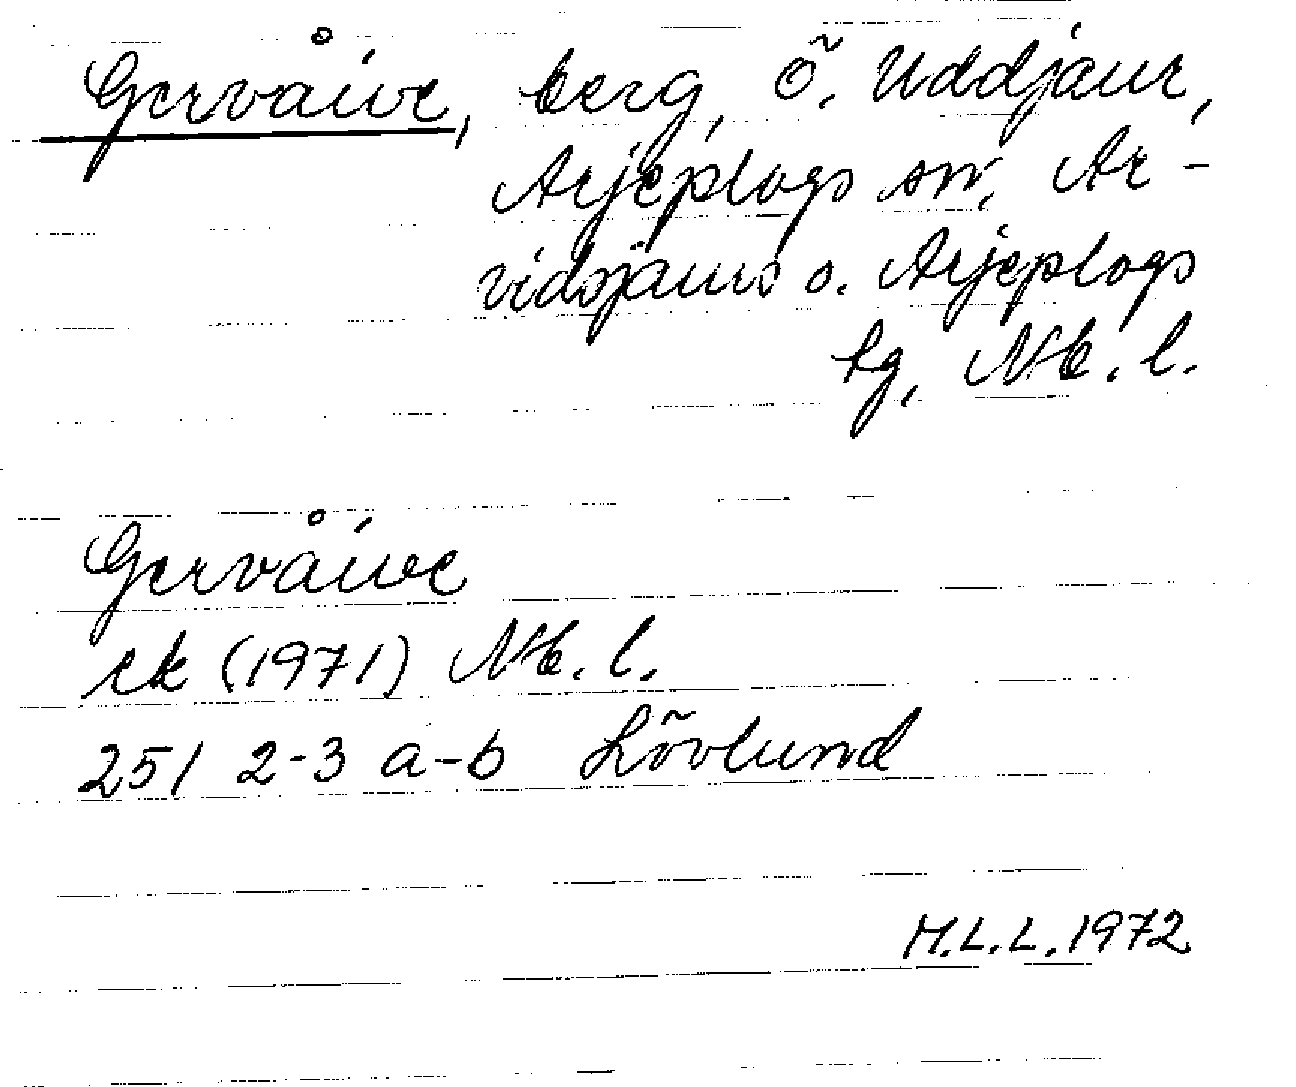 Gervåive, berg, ö. Uddjaur,
Arjeplogs sn, Ar-
vidsjaurs o. Arjeplogs
tg, Nb. l.
Gervåive
ek (1971) Nb. l.
251 2-3 a-b Lövlund
M.L.L. 1972